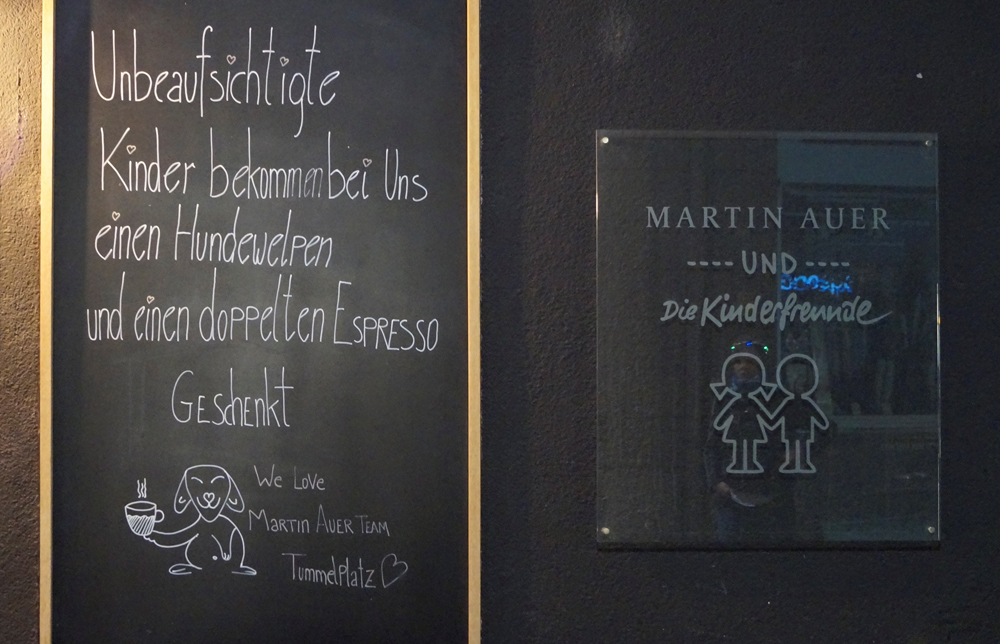 Unbeaufsichtigte
Kinder bekommen bei Uns
einen Hundewelpen
und einen doppelten ESPRESSO
GEschenkt
We Love
Martin Auer Team
Tummelplatz
MARTIN AUER
---- UND ----
Die Kinderfreunde